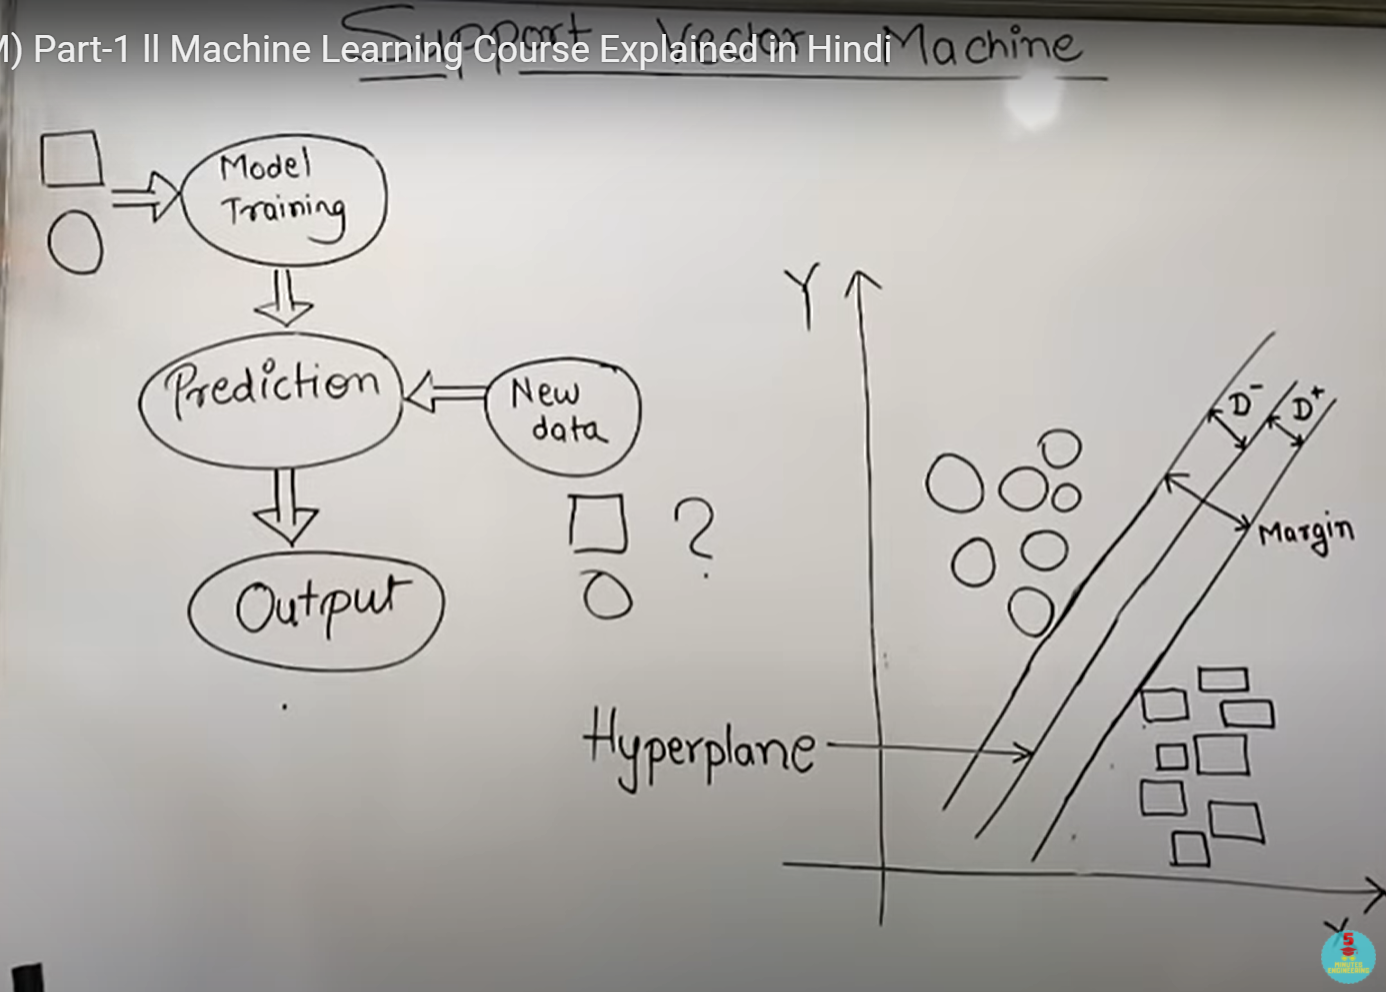 M) Part-1 ll Machine Learning Course Explained in Hindi
Support Vector Machine
Model
Training
Prediction
New
data
?
Output
Y
D-
D+
Margin
Hyperplane
5
MINUTES
ENGINEERING